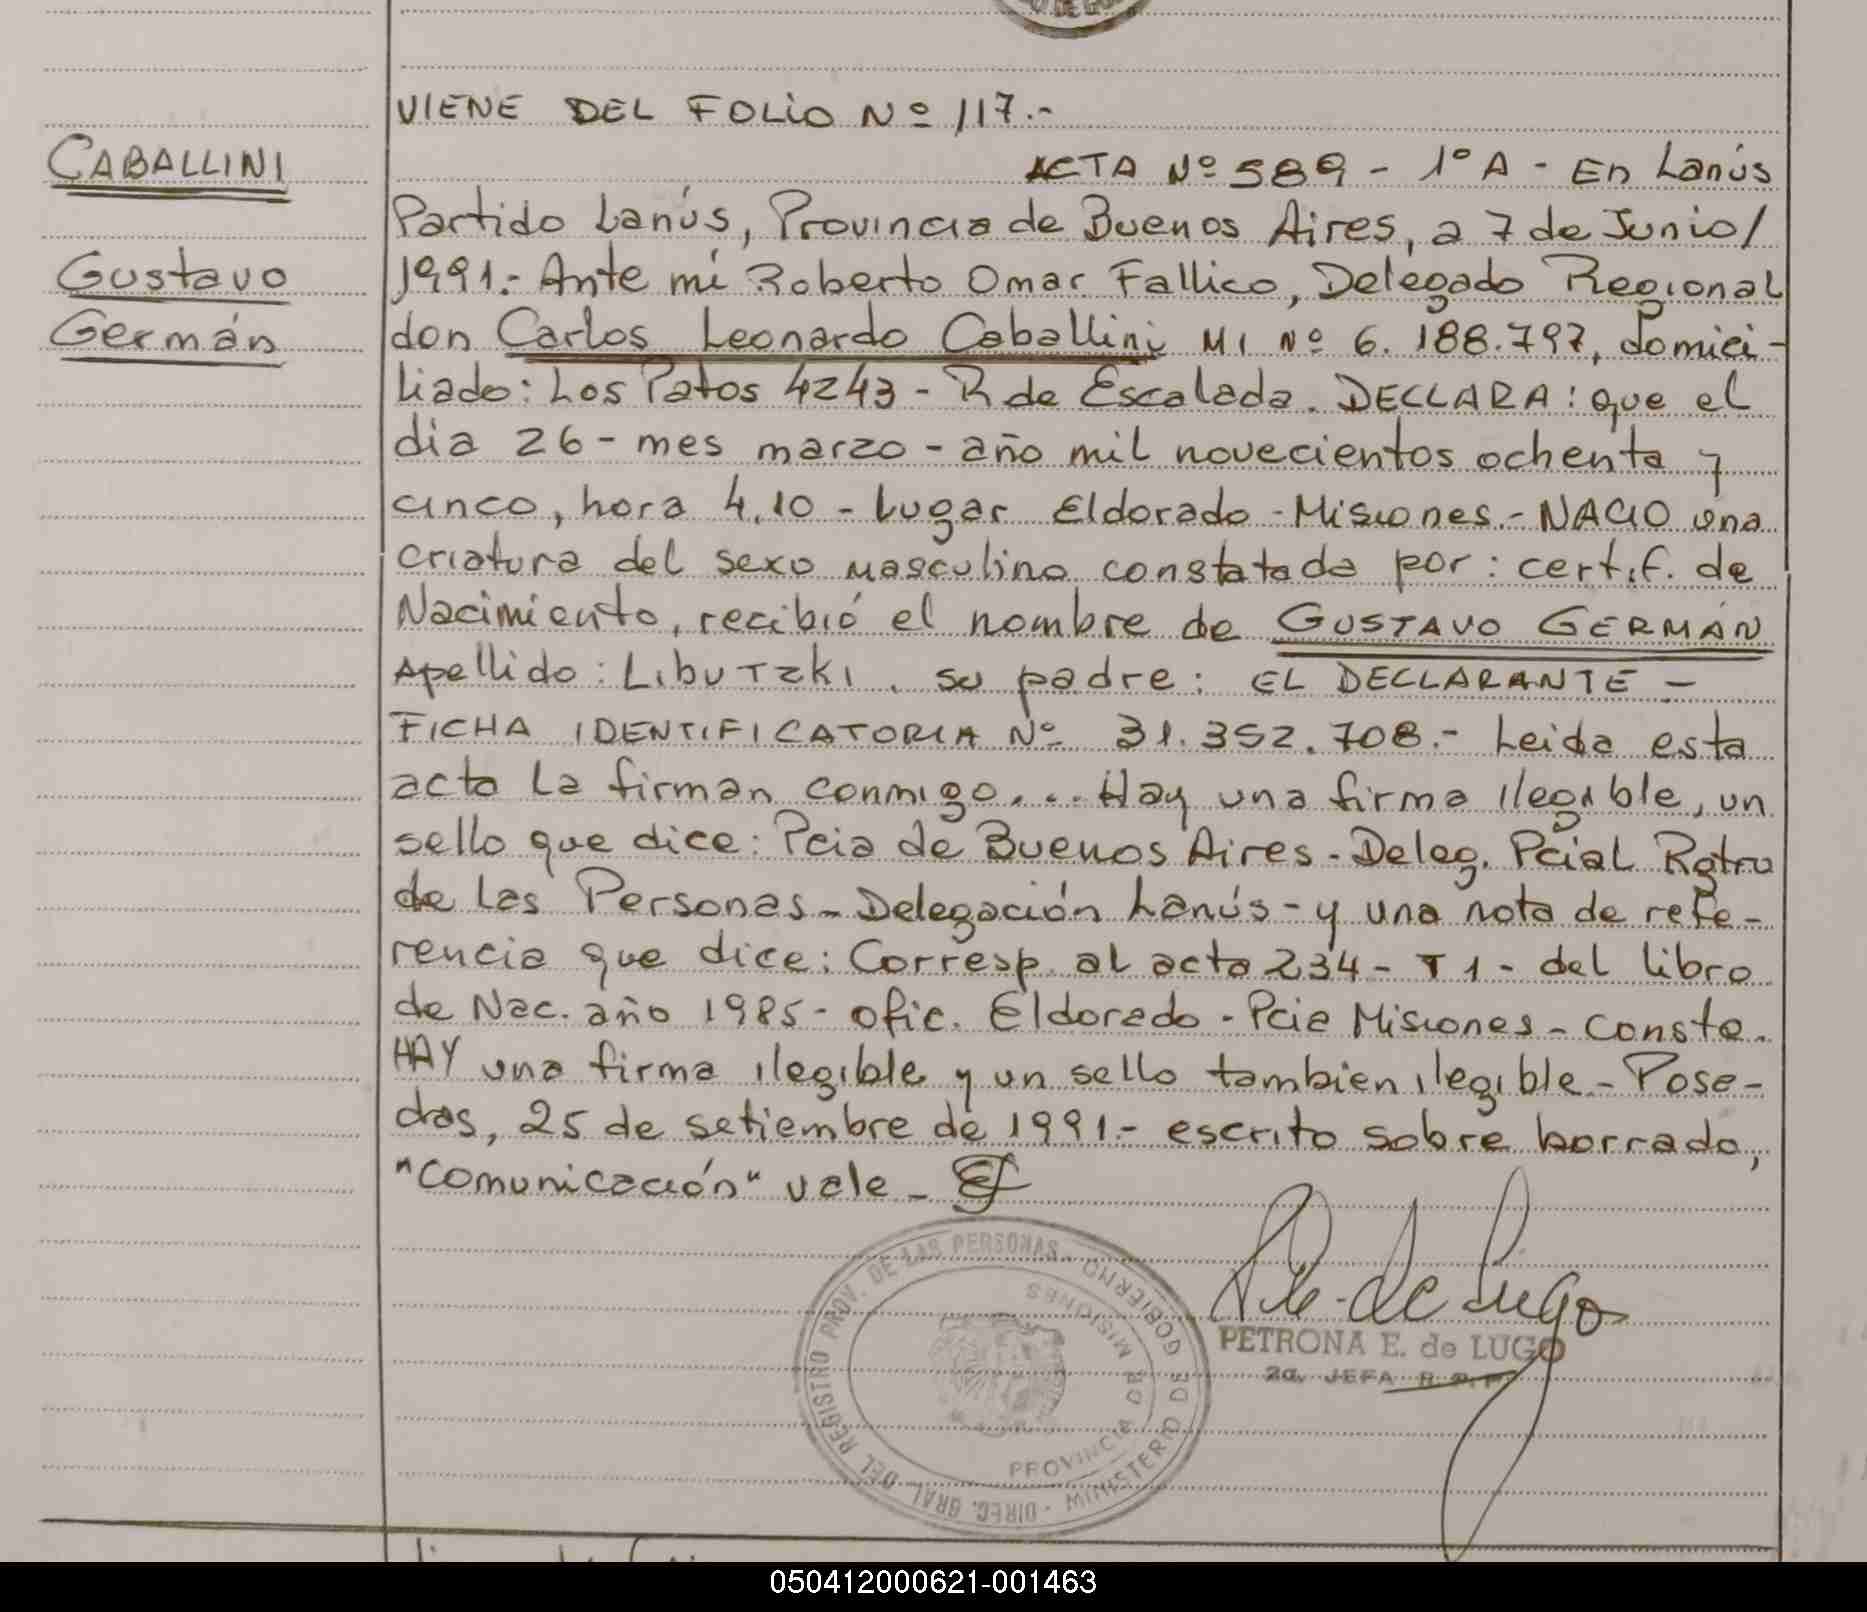 VIENE DEL FOLIO Nº 117.-
CABALLINI
ACTA Nº 589 - 1º A - En Lanús
Partido Lanús, Provincia de Buenos Aires, a 7 de Junio/
Gustavo
1991.- Ante mí Roberto Omar Fallico, Delegado Regional
Germán
don Carlos Leonardo Caballini MI Nº 6.188.797, domici-
liado: Los Patos 4243 - R de Escalada. DECLARA: que el
dia 26 - mes marzo - año mil novecientos ochenta y
cinco, hora 4.10 - Lugar Eldorado - Misiones.- NACIO una
criatura del sexo masculino constatada por: certif. de
Nacimiento, recibió el nombre de GUSTAVO GERMÁN
Apellido: Libutzki. su padre: EL DECLARANTE -
FICHA IDENTIFICATORIA Nº 31.352.708.- Leida esta
acta la firman conmigo... Hay una firma ilegible, un
sello que dice: Pcia de Buenos Aires - Deleg. Pcial Rgtro
de las Personas - Delegación Lanús - y una nota de refe-
rencia que dice: Corresp. al acta 234 - T 1 - del libro
de Nac. año 1985 - ofic. Eldorado - Pcia Misiones - Conste.
HAY una firma ilegible y un sello tambien ilegible - Posa-
das, 25 de setiembre de 1991.- escrito sobre borrado,
"comunicación" vale -
DIREC. GRAL DEL REGISTRO PROV. DE LAS PERSONAS - MINISTERIO DE GOBIERNO
PROVINCIA DE MISIONES
P. E. de Lugo
PETRONA E. de LUGO
2a. JEFA R. P. P.
050412000621-001463